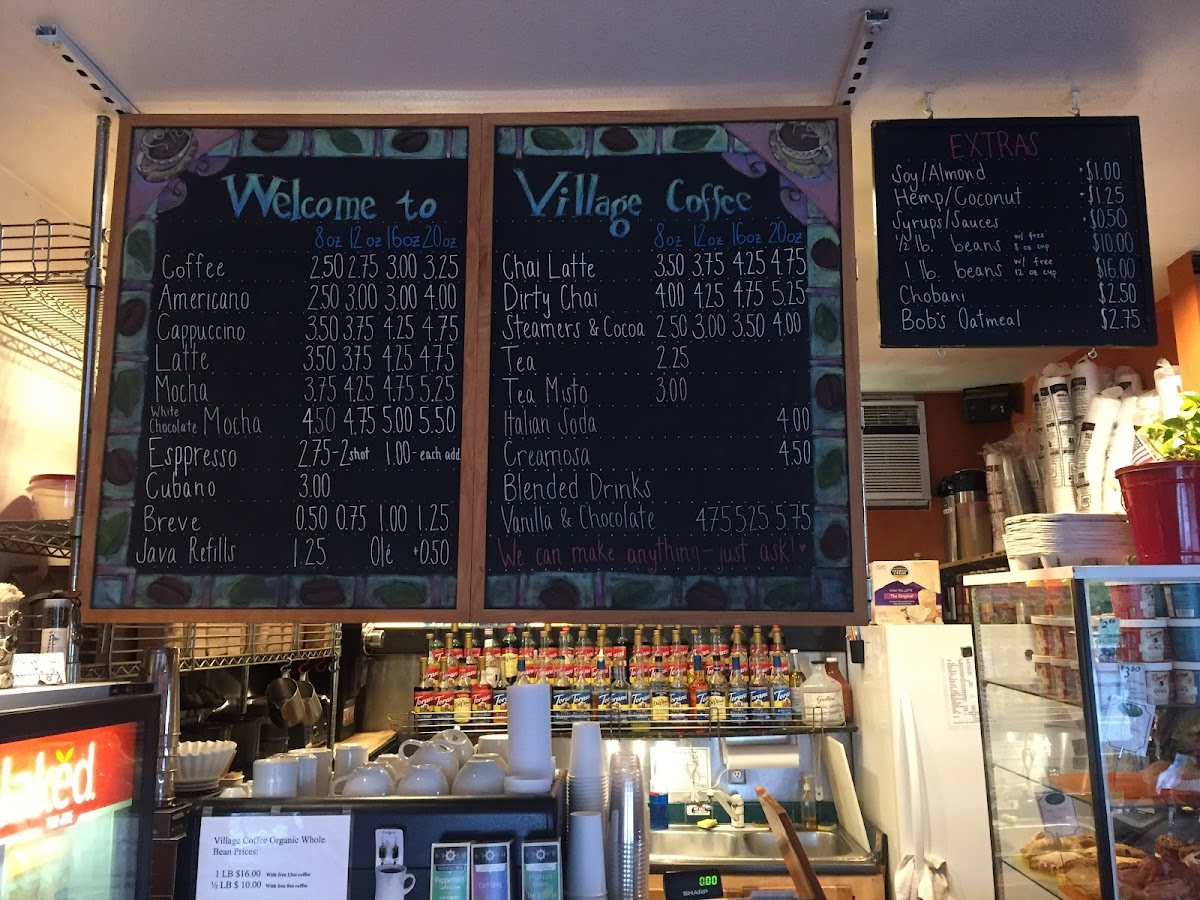 Welcome to
8oz 12oz 16oz 20oz
Coffee 2.50 2.75 3.00 3.25
Americano 2.50 3.00 3.00 4.00
Cappuccino 3.50 3.75 4.25 4.75
Latte 3.50 3.75 4.25 4.75
Mocha 3.75 4.25 4.75 5.25
White Chocolate Mocha 4.50 4.75 5.00 5.50
Esppresso 2.75-2shot 1.00-each add.
Cubano 3.00
Breve 0.50 0.75 1.00 1.25
Java Refills 1.25 Olé +0.50
Village Coffee
8oz 12oz 16oz 20oz
Chai Latte 3.50 3.75 4.25 4.75
Dirty Chai 4.00 4.25 4.75 5.25
Steamers & Cocoa 2.50 3.00 3.50 4.00
Tea 2.25
Tea Misto 3.00
Italian Soda 4.00
Creamosa 4.50
Blended Drinks
Vanilla & Chocolate 4.75 5.25 5.75
We can make anything-just ask!
EXTRAS
Soy/Almond +$1.00
Hemp/Coconut +$1.25
Syrups/Sauces +$0.50
1/2 lb. beans w/ free 8 oz cup $10.00
1 lb. beans w/ free 12 oz cup $16.00
Chobani $2.50
Bob's Oatmeal $2.75
Naked.
Village Coffee Organic Whole
Bean Prices:
1 LB $16.00 With free 12oz coffee
½ LB $ 10.00 With free 8oz coffee
Torani
Peppermint
Earl Grey
0.00
SHARP
The Original
$3.00